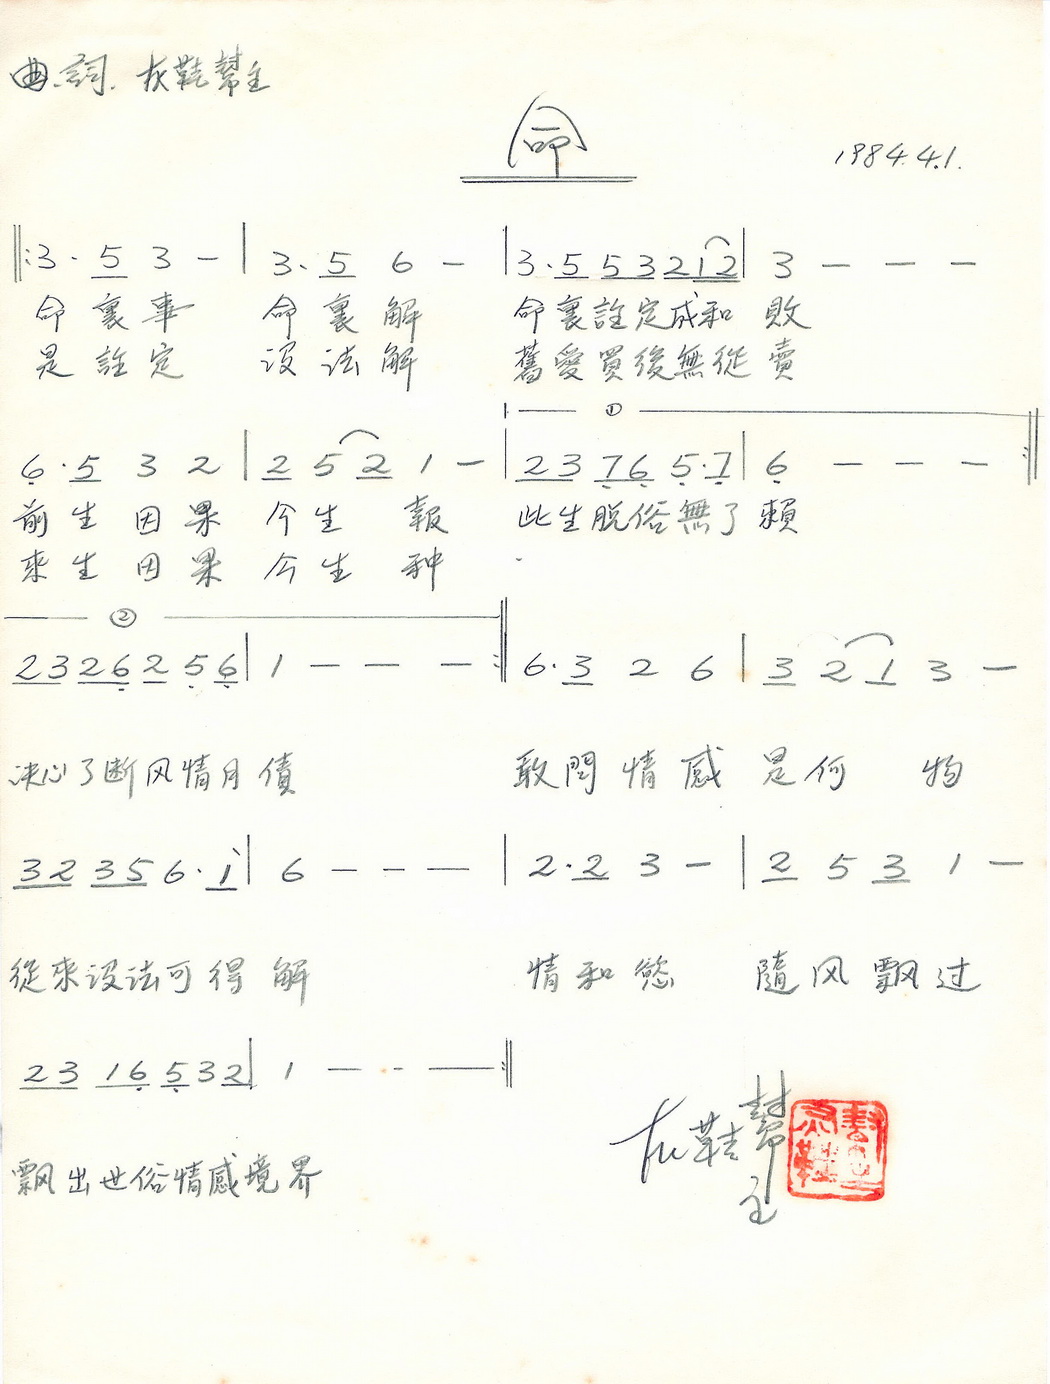 曲.詞. 灰鞋幫主
命
1984.4.1.
3· 5 3 – | 3· 5 6 – | 3· 5 5 3 2 1 2 | 3 – – –
命裏事 命裏解 命裏註定成和敗
是註定 没法解 舊愛買後無從賣
①
6· 5 3 2 | 2 5 2 1 – | 2 3 7 6 5· 7 | 6 – – –
前生因果 今生報 此生脱俗無了賴
來生因果 今生种
②
2 3 2 6 2 5 6 | 1 – – – 6· 3 2 6 | 3 2 1 3 –
决心了断风情月債 敢問情感是何物
3 2 3 5 6· 1 | 6 – – – | 2· 2 3 – | 2 5 3 1 –
從來没法可得解 情和慾 隨风飘过
2 3 1 6 5 3 2 | 1 – – –
飘出世俗情感境界
灰鞋幫主